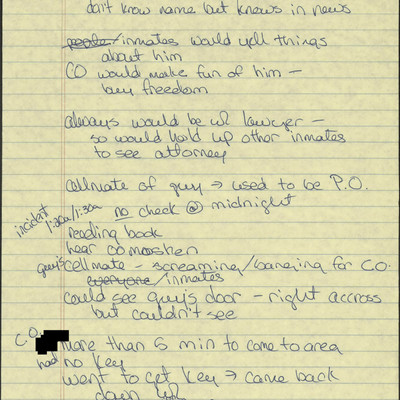 don't know name but knows in news
people/inmates would yell things
about him
CO would make fun of him –
buy freedom
always would be w/ lawyer –
so would hold up other inmates
to see attorney
cellmate of guy → used to be P.O.
incident 1:20a/1:30a no check @ midnight
reading book
hear comoshen
guy's cellmate – screaming/banging for C.O.
everyone/inmates
could see guy's door – right accross
but couldn't see
C.O. more than 5 min to come to area
had no key
went to get key → came back
down w/